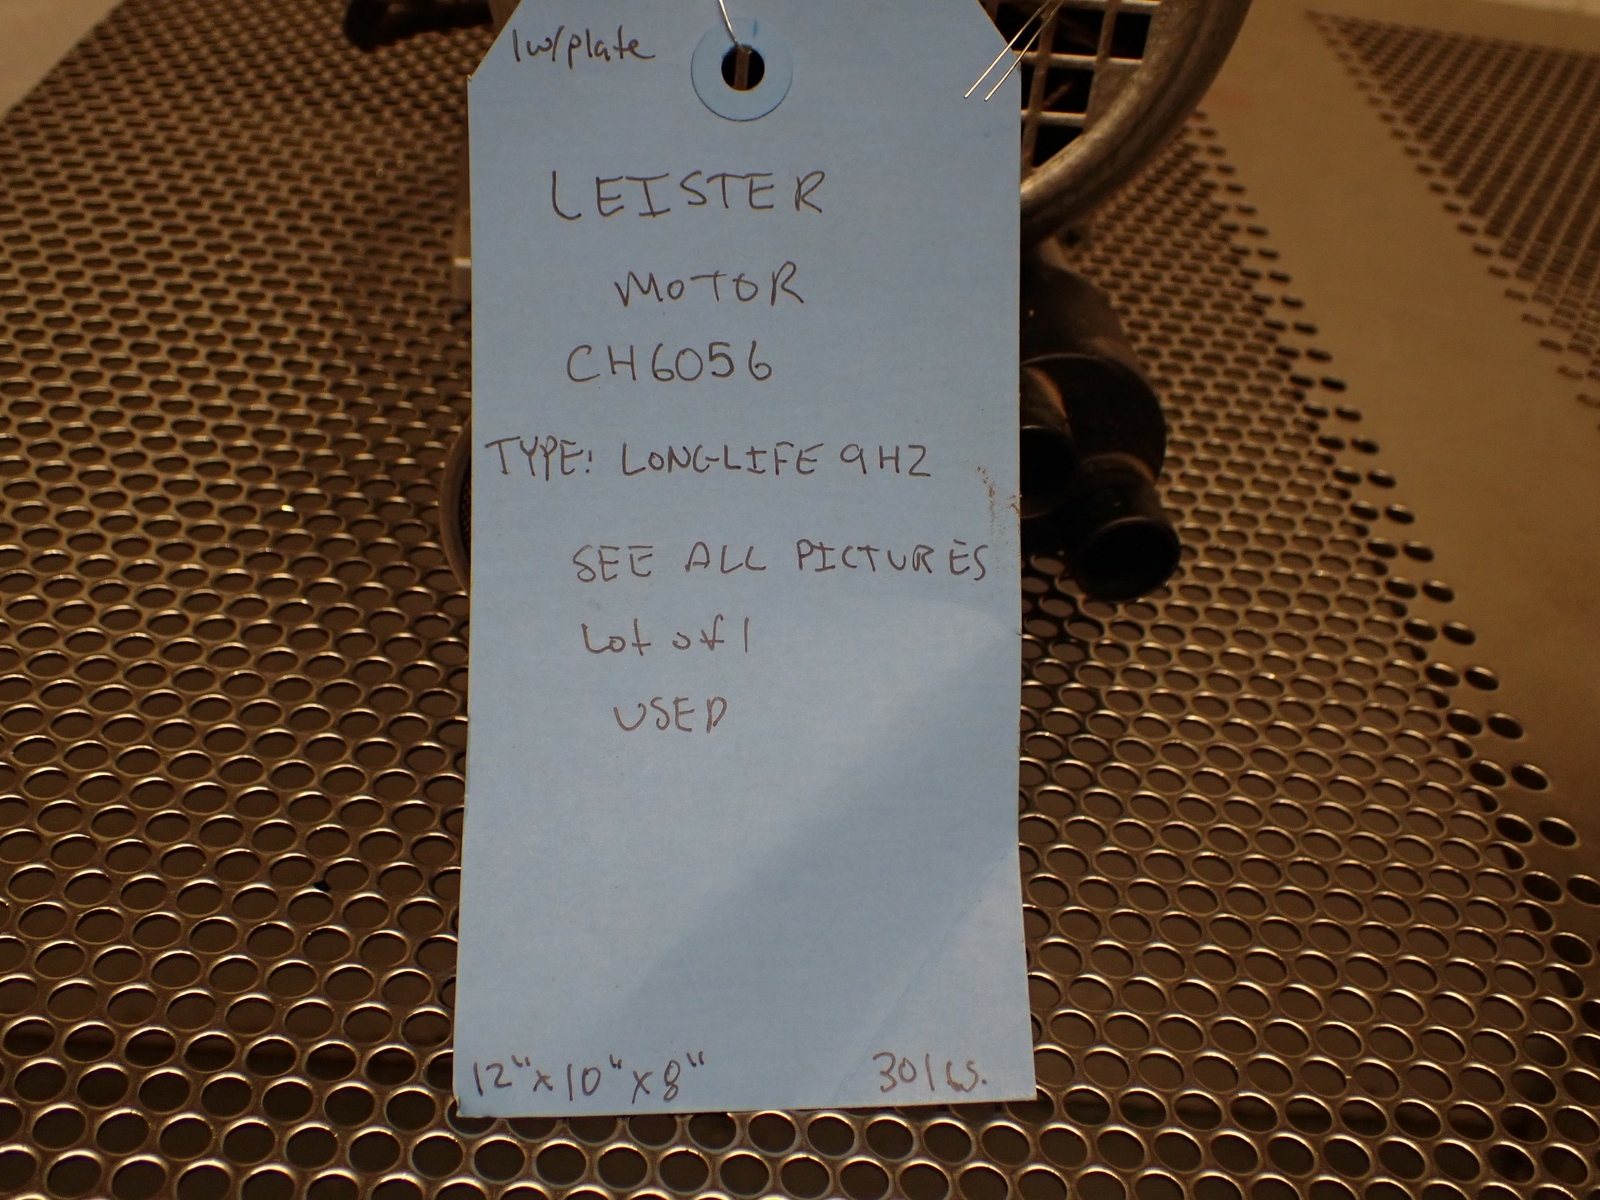 1w/plate
LEISTER
MOTOR
CH6056
TYPE: LONG-LIFE 9HZ
SEE ALL PICTURES
Lot of 1
USED
12" x 10" x 8"
30 lbs.